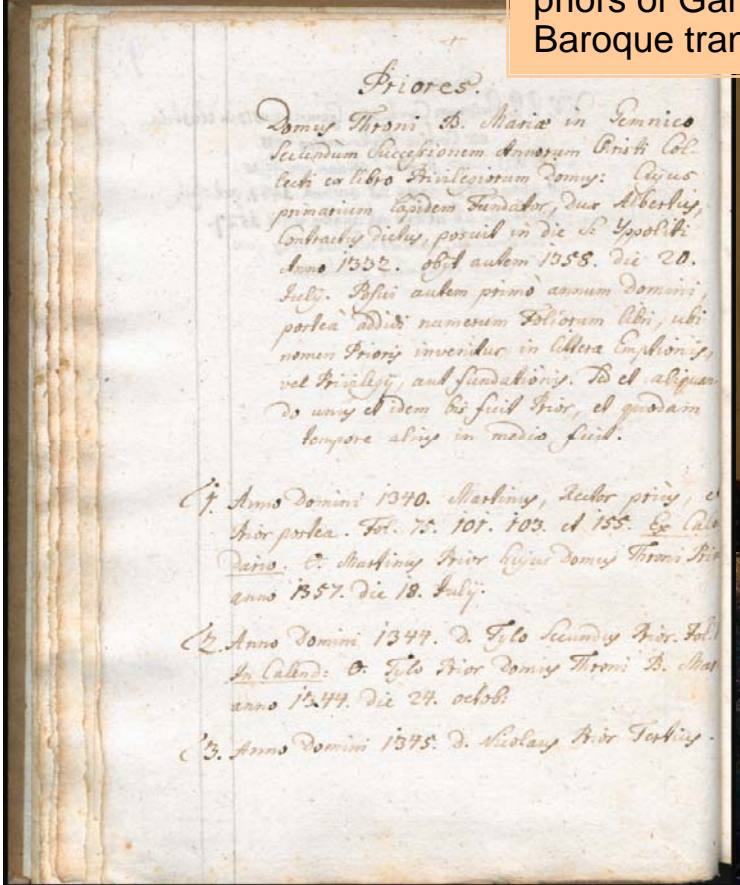 priors of Gar
Baroque tran
Priores.
Domus Throni B. Mariæ in Gemnico
Secundum Successionem Annorum Christi Col-
lecti ex libro Privilegiorum Domus: Cujus
primarium lapidem Fundator, Dux Albertus,
Contractus dictus, posuit in die S. Yppoliti
Anno 1332. obijt autem 1358. die 20.
Julij. Posui autem primò annum Domini,
posteà addidi numerum Foliorum libri, ubi
nomen Prioris invenitur in littera Emptionis,
vel Privilegij, aut fundationis. Sed et aliquan
do unus et idem bis fuit Prior, et quodam
tempore alius in medio fuit.
1. Anno Domini 1340. Martinus, Rector prius, e
Prior postea. Fol. 75. 101. 103. et 155. Ex Cale
dario. O. Martinus Prior hujus Domus Throni
anno 1357. die 18. Julij.
2. Anno Domini 1344. D. Tylo Secundus Prior. Fol.
In Calend: O. Tylo Prior Domus Throni B. Mar
anno 1344. die 24. octob:
3. Anno Domini 1345. D. Nicolaus Prior Tertius.